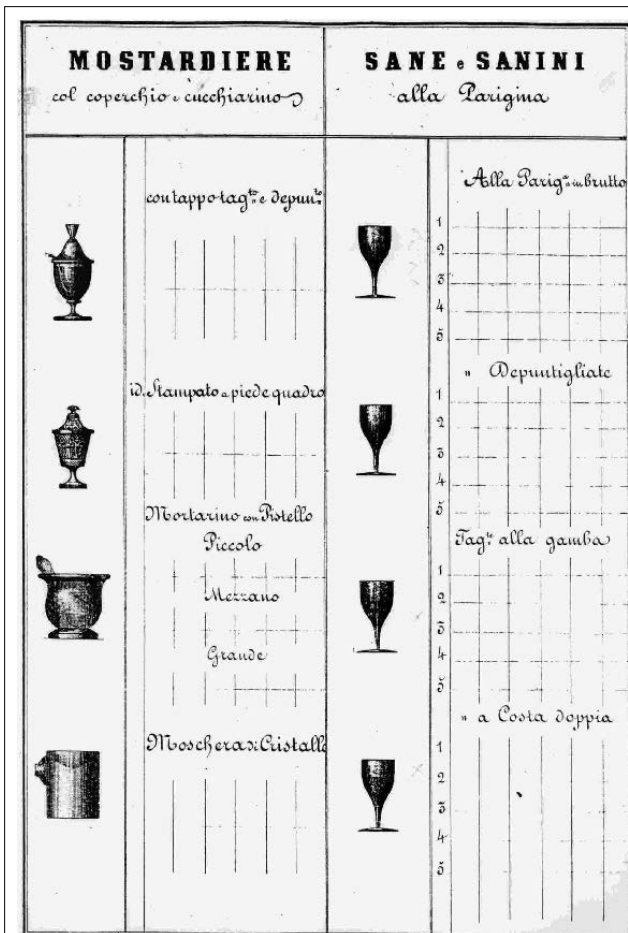 MOSTARDIERE
col coperchio e cucchiarino
con tappo tag.to e depun.to
id. Stampato a piede quadro
Mortarino con Pistello
Piccolo
Mezzano
Grande
Moschera di Cristallo
SANE e SANINI
alla Parigina
Alla Parig.na in brutto
1
2
3
4
5
" Depuntigliate
1
2
3
4
5
Tag.te alla gamba
1
2
3
4
5
" a Costa doppia
1
2
3
4
5